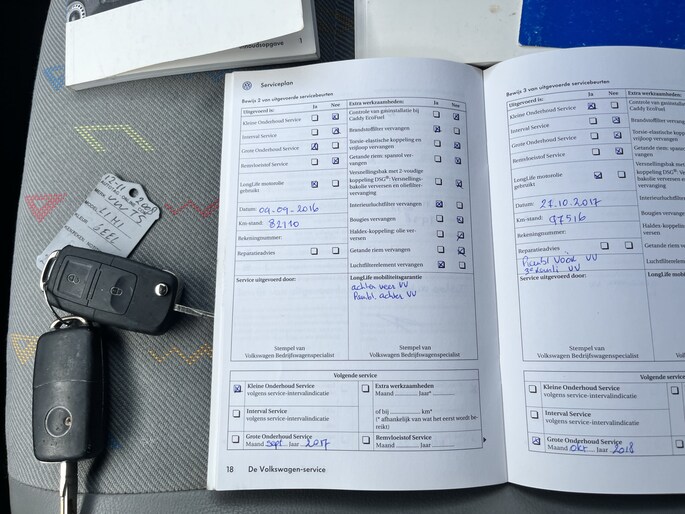 houdsopgave 1
Serviceplan
Bewijs 2 van uitgevoerde servicebeurten
Uitgevoerd is: Ja Nee
Kleine Onderhoud Service
Interval Service
Grote Onderhoud Service
Remvloeistof Service
LongLife motorolie
gebruikt
Datum: 09-09-2016
Km-stand: 82110
Rekeningnummer:
Reparatieadvies
Service uitgevoerd door:
Extra werkzaamheden: Ja Nee
Controle van gasinstallatie bij
Caddy EcoFuel
Brandstoffilter vervangen
Torsie-elastische koppeling en
vrijloop vervangen
Getande riem: spanrol ver-
vangen
Versnellingsbak met 2-voudige
koppeling DSG®: Versnellings-
bakolie verversen en oliefilter-
vervanging
Interieurluchtfilter vervangen
Bougies vervangen
Haldex-koppeling: olie ver-
versen
Getande riem vervangen
Luchtfilterelement vervangen
LongLife mobiliteitsgarantie
achter veer VV
achter VV
Stempel van
Volkswagen Bedrijfswagenspecialist
Stempel van
Volkswagen Bedrijfswagenspecialist
Volgende service
Kleine Onderhoud Service
volgens service-intervalindicatie
Interval Service
volgens service-intervalindicatie
Grote Onderhoud Service
Maand sept Jaar 2017
Extra werkzaamheden
Maand Jaar*
of bij km*
(* afhankelijk van wat het eerst wordt be-
reikt)
Remvloeistof Service
Maand Jaar
18 De Volkswagen-service
Bewijs 3 van uitgevoerde servicebeurten
Uitgevoerd is: Ja Nee
Kleine Onderhoud Service
Interval Service
Grote Onderhoud Service
Remvloeistof Service
LongLife motorolie
gebruikt
Datum: 27.10.2017
Km-stand: 97516
Rekeningnummer:
Reparatieadvies
voor VV
VV
Service uitgevoerd door:
Extra werkzaamheden:
Controle van gasinstal
Caddy EcoFuel
Brandstoffilter vervan
Torsie-elastische kopp
vrijloop vervangen
Getande riem: spanro
vangen
Versnellingsbak met
koppeling DSG®: Ver
bakolie verversen en
vervanging
Interieurluchtfilter
Bougies vervangen
Haldex-koppeling:
versen
Getande riem verv
Luchtfilterelement
LongLife mobili
Stempel van
Volkswagen Bedrijfswagenspecialist
Volk
Volgende service
Kleine Onderhoud Service
volgens service-intervalindicatie
Interval Service
volgens service-intervalindicatie
Grote Onderhoud Service
Maand okt Jaar 2018